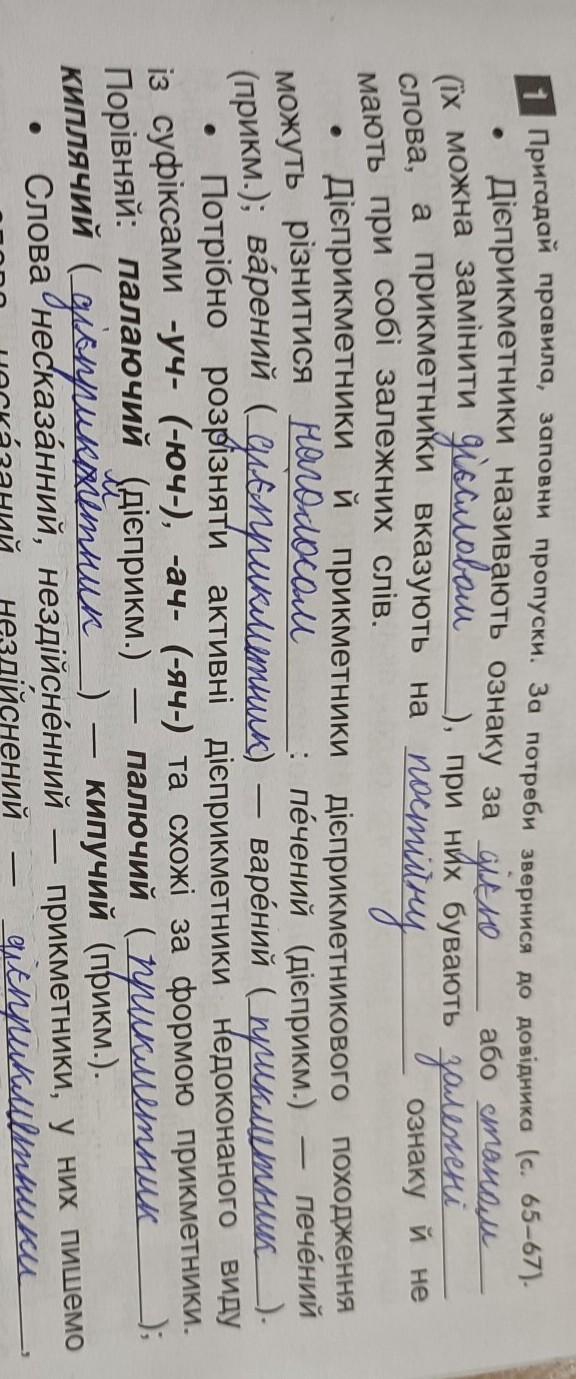 1 Пригадай правила, заповни пропуски. За потреби звернися до довідника (с. 65–67).
• Дієприкметники називають ознаку за дією або станом
(їх можна замінити дієсловом), при них бувають залежні
слова, а прикметники вказують на постійну ознаку й не
мають при собі залежних слів.
• Дієприкметники й прикметники дієприкметникового походження
можуть різнитися наголосом: пе́чений (дієприкм.) — пече́ний
(прикм.); ва́рений (дієприкметник) — варе́ний (прикметник).
• Потрібно розрізняти активні дієприкметники недоконаного виду
із суфіксами -уч- (-юч-), -ач- (-яч-) та схожі за формою прикметники.
Порівняй: палаючий (дієприкм.) — палючий (прикметник);
киплячий (дієприкметник) — кипучий (прикм.).
• Слова несказа́нний, нездійсне́нний — прикметники, у них пишемо
неска́заний, нездійснений — дієприкметники,